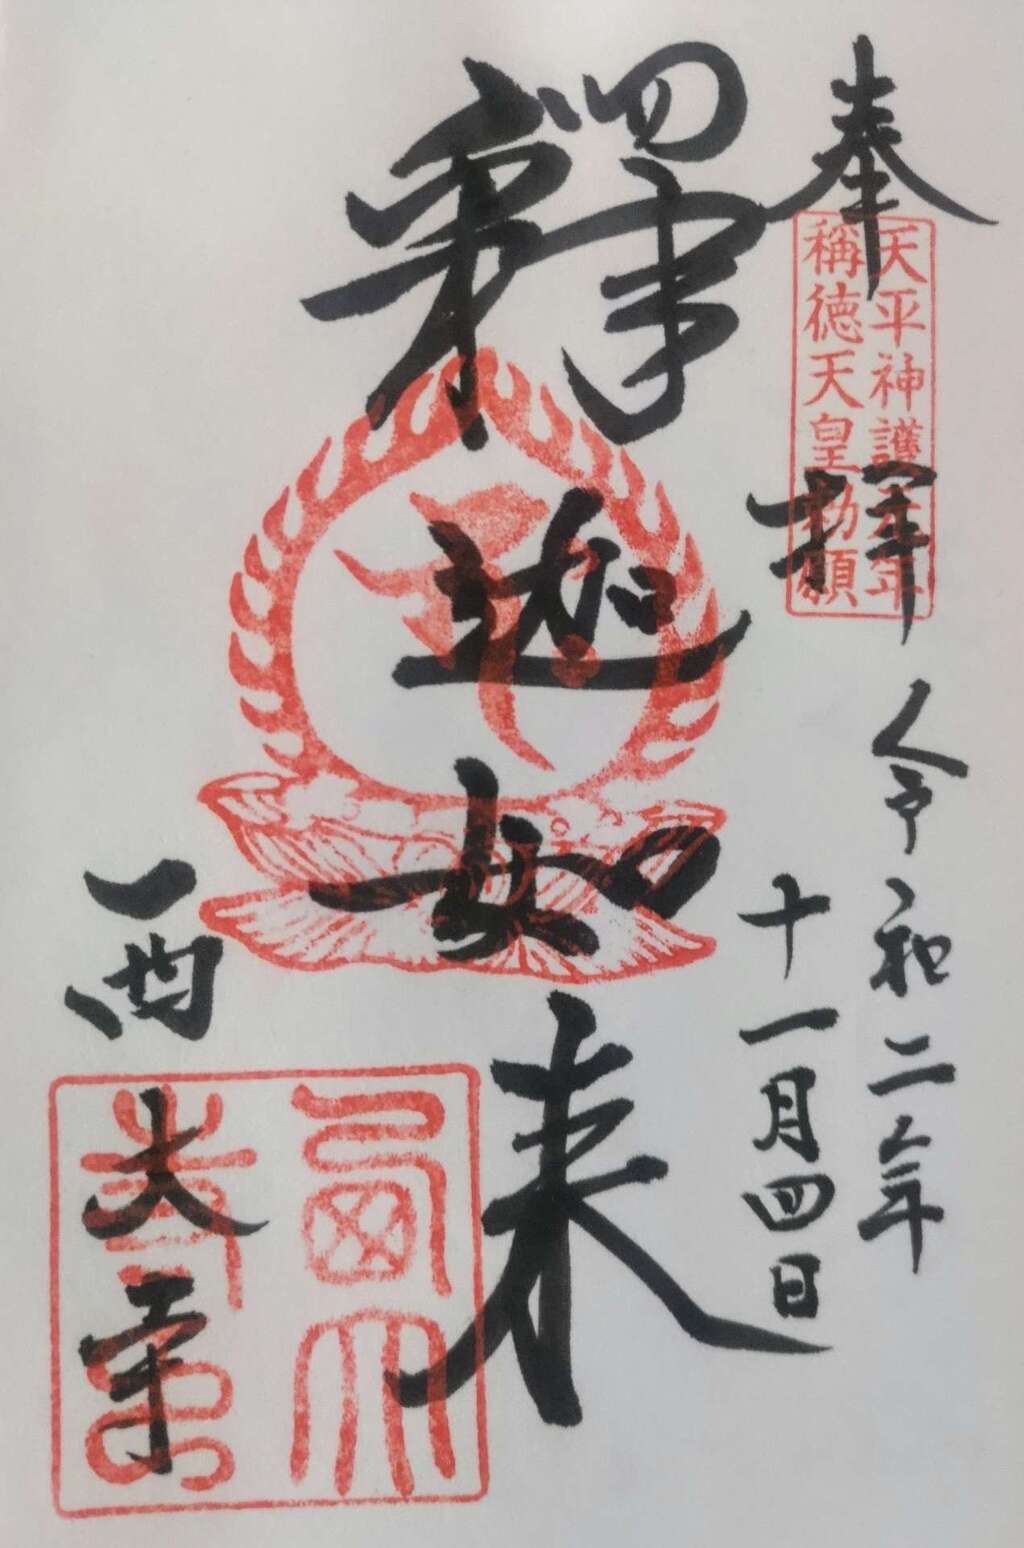 奉拝
天平神護元年
稱徳天皇勅願
令和二年
十一月四日
釋迦如来
西大寺